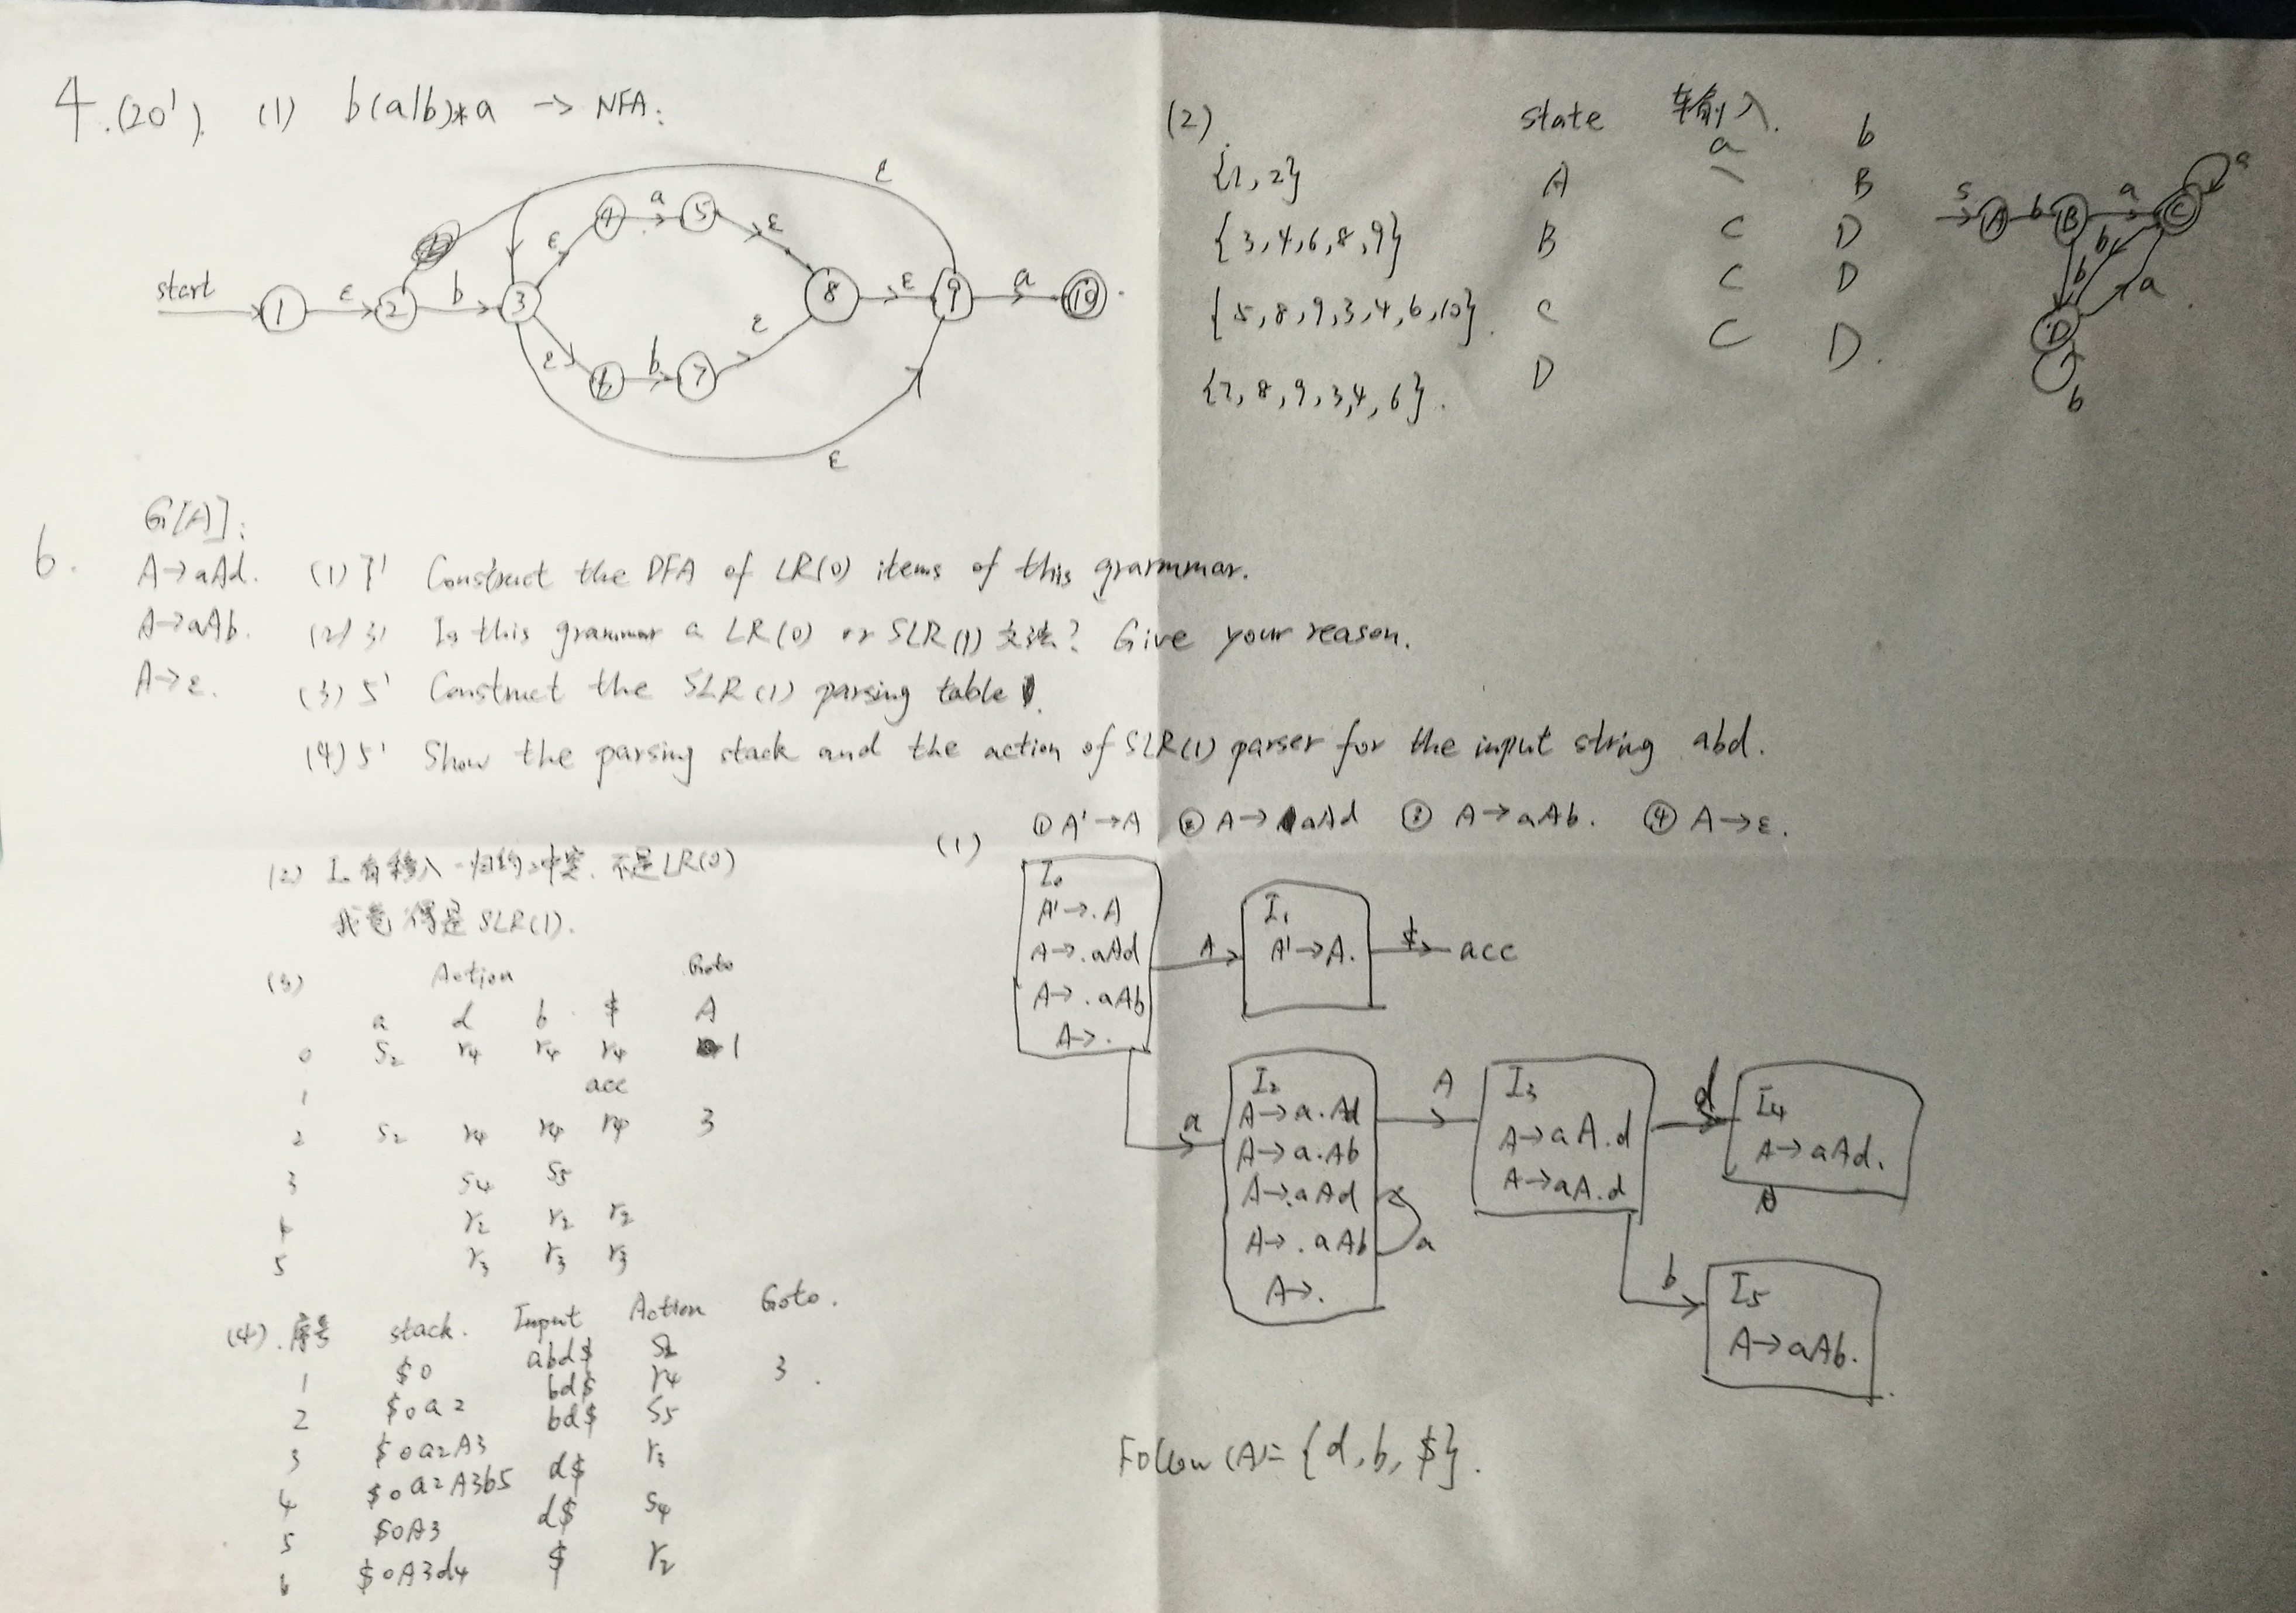 4.(20'). (1) b(a|b)*a → NFA:
start 1 ε 2 b 3 ε 4 a 5 ε 8 ε 9 a 10
ε 6 b 7 ε
ε
ε
(2) state 输入
a b
{1,2} A - B
{3,4,6,8,9} B C D
{5,8,9,3,4,6,10} C C D
{7,8,9,3,4,6} D C D
S A b B a C a
b b a
D
b
6. G[A]:
A→aAd. (1) 7' Construct the DFA of LR(0) items of this grammar.
A→aAb. (2) 3' Is this grammar a LR(0) or SLR(1) 文法? Give your reason.
A→ε. (3) 5' Construct the SLR(1) parsing table.
(4) 5' Show the parsing stack and the action of SLR(1) parser for the input string abd.
(1) ① A'→A ② A→aAd ③ A→aAb. ④ A→ε.
I0
A'→.A
A→.aAd
A→.aAb
A→.
A
I1
A'→A.
$ acc
a
I2
A→a.Ad
A→a.Ab
A→.aAd
A→.aAb
A→.
a
A
I3
A→aA.d
A→aA.d
d
I4
A→aAd.
b
I5
A→aAb.
Follow(A)={d,b,$}.
(2) I0有移入-归约冲突.不是LR(0)
我觉得是SLR(1).
(3) Action Goto
a d b $ A
0 S2 r4 r4 r4 1
1 acc
2 S2 r4 r4 r4 3
3 S4 S5
4 r2 r2 r2
5 r3 r3 r3
(4).序号 stack. Input Action Goto.
1 $0 abd$ S2
2 $0a2 bd$ r4 3
3 $0a2A3 bd$ S5
4 $0a2A3b5 d$ r3
5 $0A3 d$ S4
6 $0A3d4 $ r2